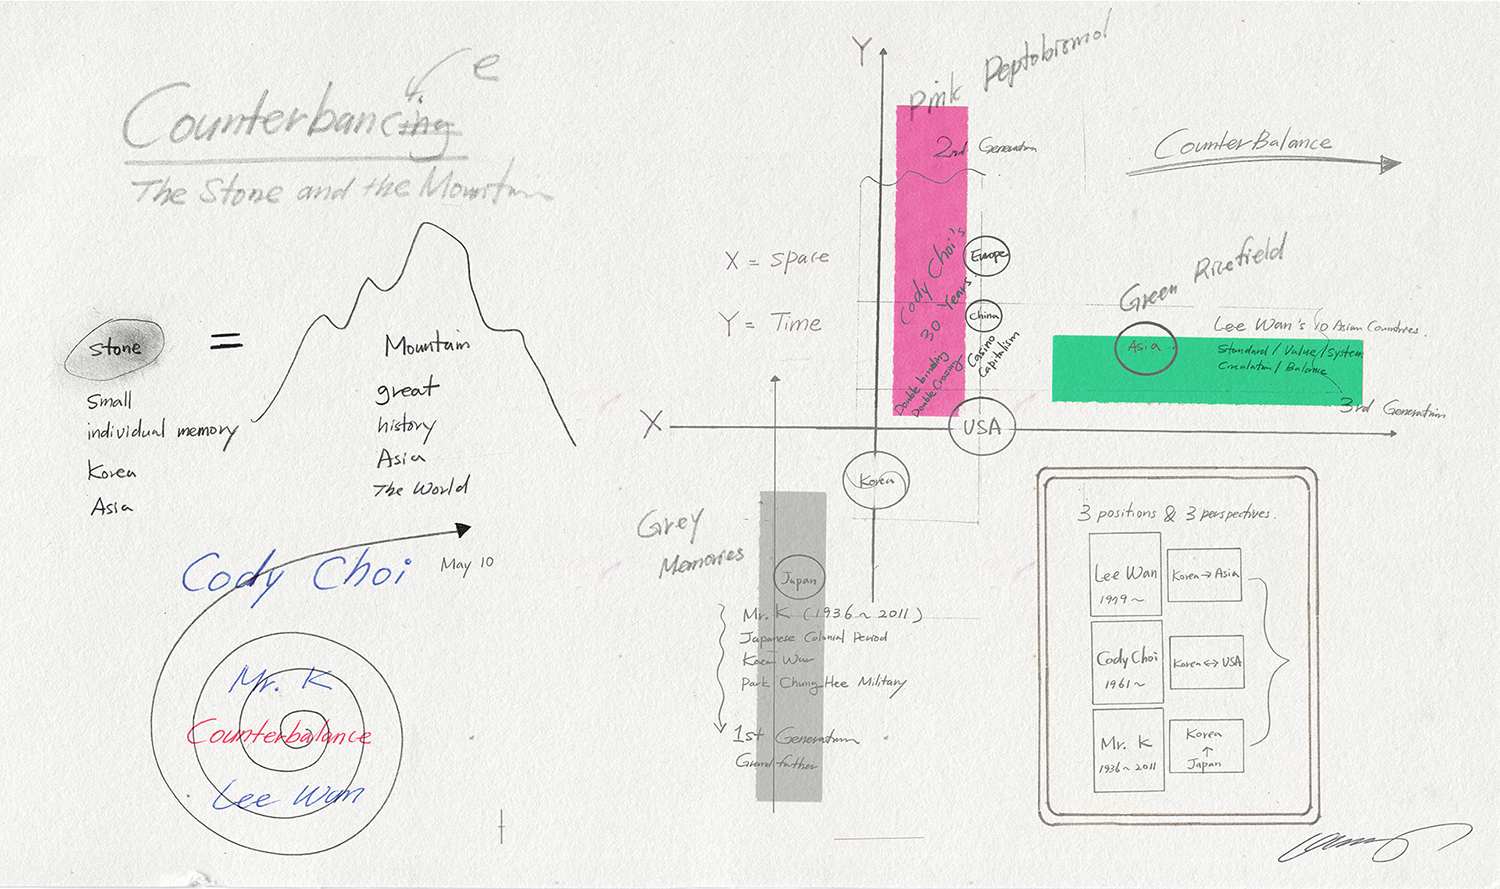 e
Counterbancing
The Stone and the Mountain
stone
=
Small
individual memory
Korea
Asia
Mountain
great
history
Asia
The World
Cody Choi
May 10
Mr. K
Counterbalance
Lee Wan
Y
Pink Peptobismol
2nd Generation
CounterBalance
X = Space
Y = Time
Cody Choi's
30 Years
Double binding
Double Crossing
Europe
China
Casino
Capitalism
Green Ricefield
Asia
Lee Wan's 10 Asian Countries
Standard / Value / System
Circulation / Balance
3rd Generation
X
USA
Korea
Grey
Memories
Japan
Mr. K (1936 ~ 2011)
Japanese Colonial Period
Korean War
Park Chung-Hee Military
1st Generation
Grand father
3 positions & 3 perspectives.
Lee Wan
1979 ~
Korea → Asia
Cody Choi
1961 ~
Korea ↔ USA
Mr. K
1936 ~ 2011
Korea
↑
Japan